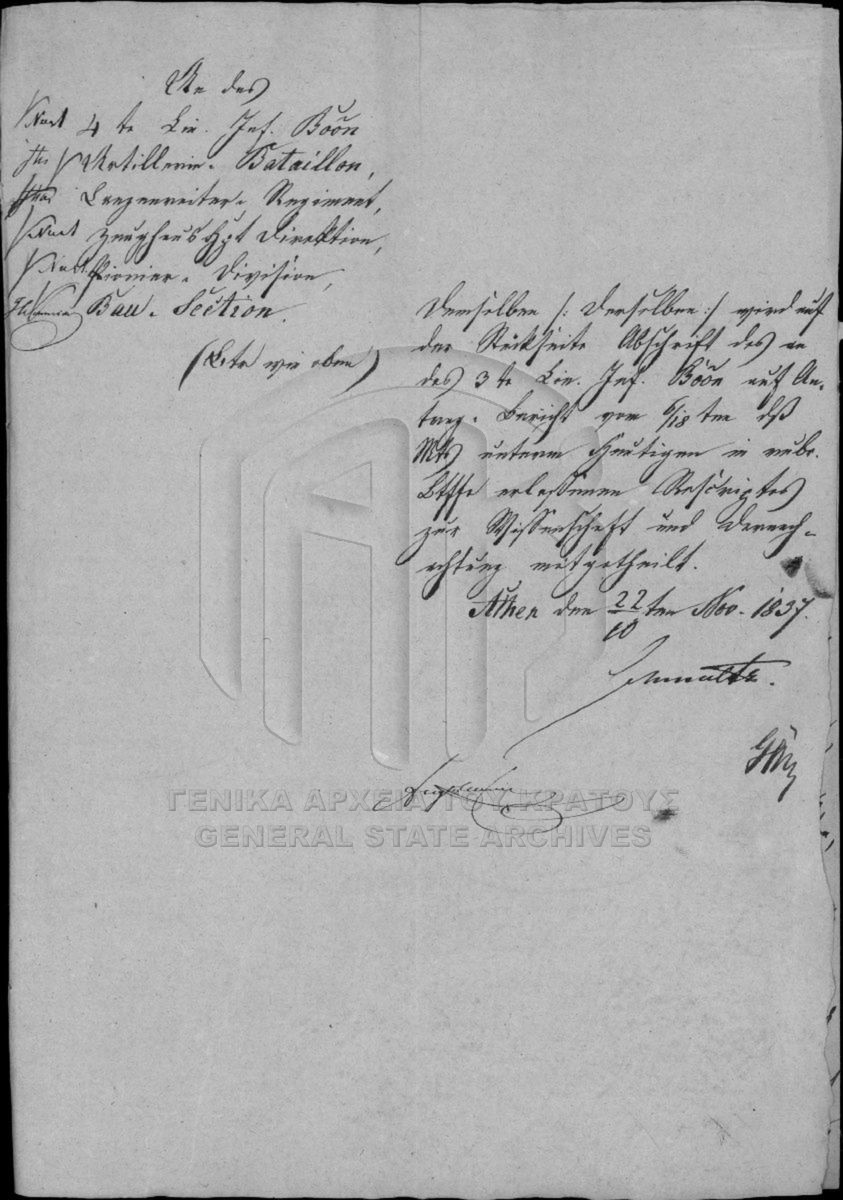 An das
4te Lin. Inf. Baōn
Artillerie-Bataillon,
Lanzenreiter-Regiment,
Zeughaus Hpt Direktion,
Pionier-Division,
Bau-Section.
(Betr. wie oben)
Demselben /: Derselben :/ wird auf
der Rückseite Abschrift des an
das 3te Lin. Inf. Baōn auf An-
trag-Bericht vom 6/18ten dß
Mts unterm Heutigen in
erlassenen Rescriptes
zur Wissenschaft und Darnach-
achtung mitgetheilt.
Athen den 22/10ten Nov. 1837.
Schmaltz.
ΓΕΝΙΚΑ ΑΡΧΕΙΑ ΤΟΥ ΚΡΑΤΟΥΣ
GENERAL STATE ARCHIVES